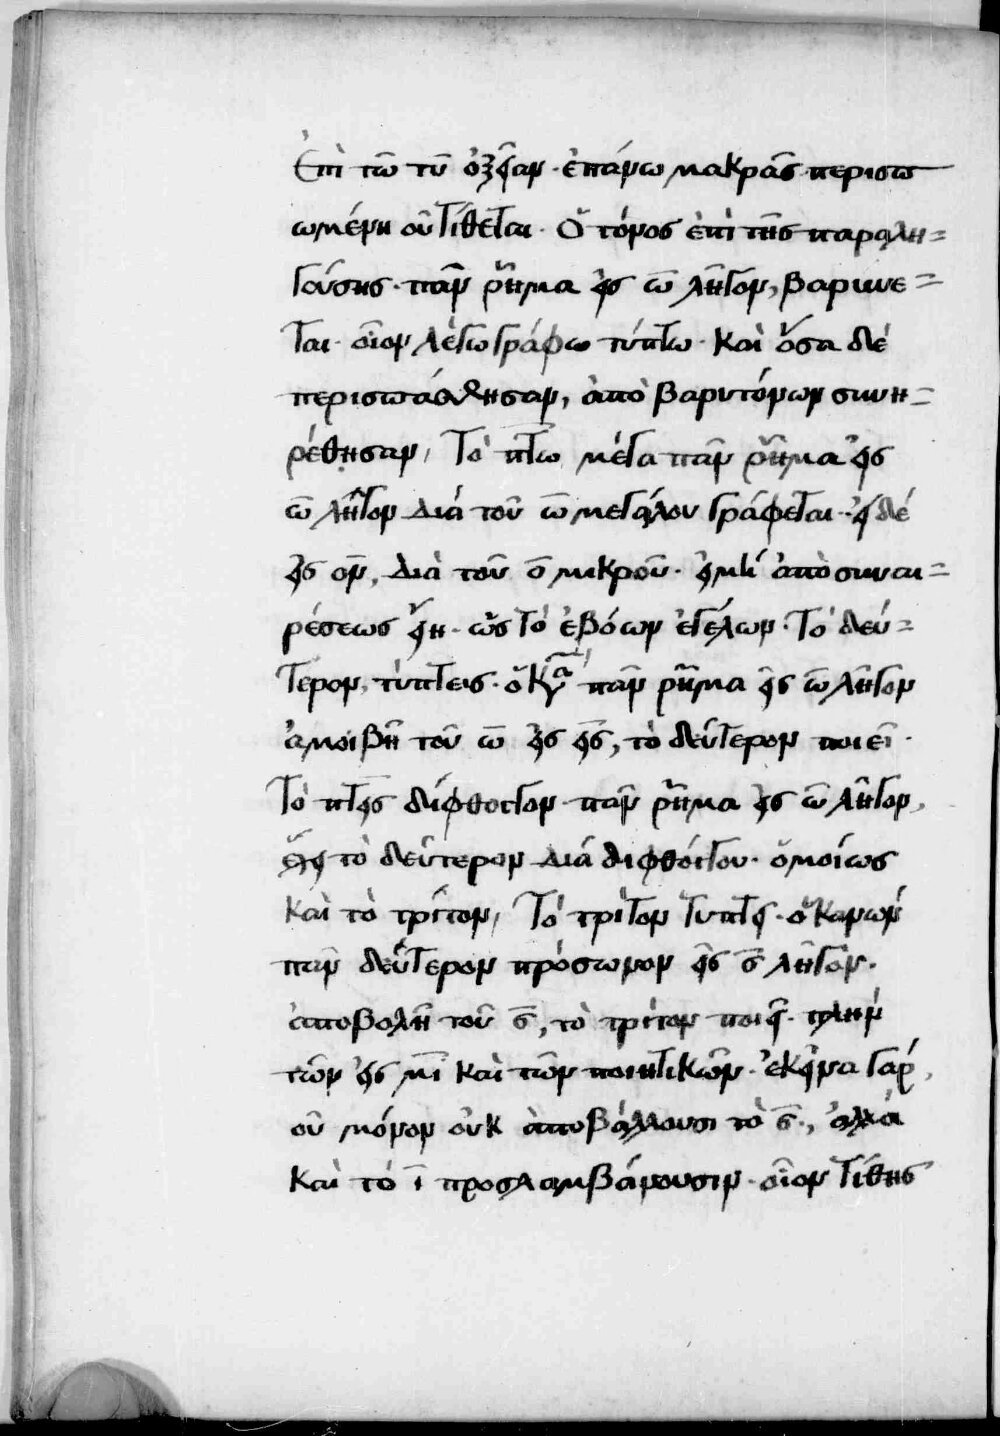 Ἐπὶ τῶ τῦ ὀξεῖαν· ἐπάνω μακρᾶς περισπ
ωμένη οὐ τίθεται· Ὁ τόνος ἐπὶ τῆς παραλη=
γούσης· πᾶν ῥῆμα εἰς ω̅ λῆγον, βαρύνε=
ται· οἷον λέγω γράφω τύπτω· καὶ ὅσα δὲ
περιεσπάσθησαν, ἀπὸ βαρυτόνων συνη=
ρέθησαν, Τὸ πτω μέγα πᾶν ῥῆμα εἰς
ω̅ λῆγον διὰ τοῦ ω̅ μεγάλου γράφεται· εἰ δὲ
εἰς ον, διὰ τοῦ ο̅ μικροῦ· εἰ μὴ ἀπὸ συναι=
ρέσεως εἴη· ὡς τὸ ἐβόων ἐγέλων· Τὸ δεύ=
τερον, τύπτεις· ὁ κα πᾶν ῥῆμα εἰς ω̅ λῆγον
ἀμοιβῆ τοῦ ω̅ εἰς εις, τὸ δεύτερον ποιεῖ·
Τὸ πτεις δίφθογγον πᾶν ῥῆμα εἰς ω̅ λῆγον,
ἔχει τὸ δεύτερον διὰ διφθόγγου· ὁμοίως
καὶ τὸ τρίτον, Τὸ τρίτον τύπτει· ὁ κανών
πᾶν δεύτερον πρόσωπον εἰς ς̅ λῆγον·
ἀποβολῆ τοῦ ς̅, τὸ τρίτον ποιεῖ· πλὴν
τῶν εἰς μι καὶ τῶν ποιητικῶν· ἐκεῖνα γὰρ,
οὐ μόνον οὐκ ἀποβάλλουσι τὸ ς̅, ἀλλὰ
καὶ τὸ ι̅ προσλαμβάνουσιν· οἷον τίθης